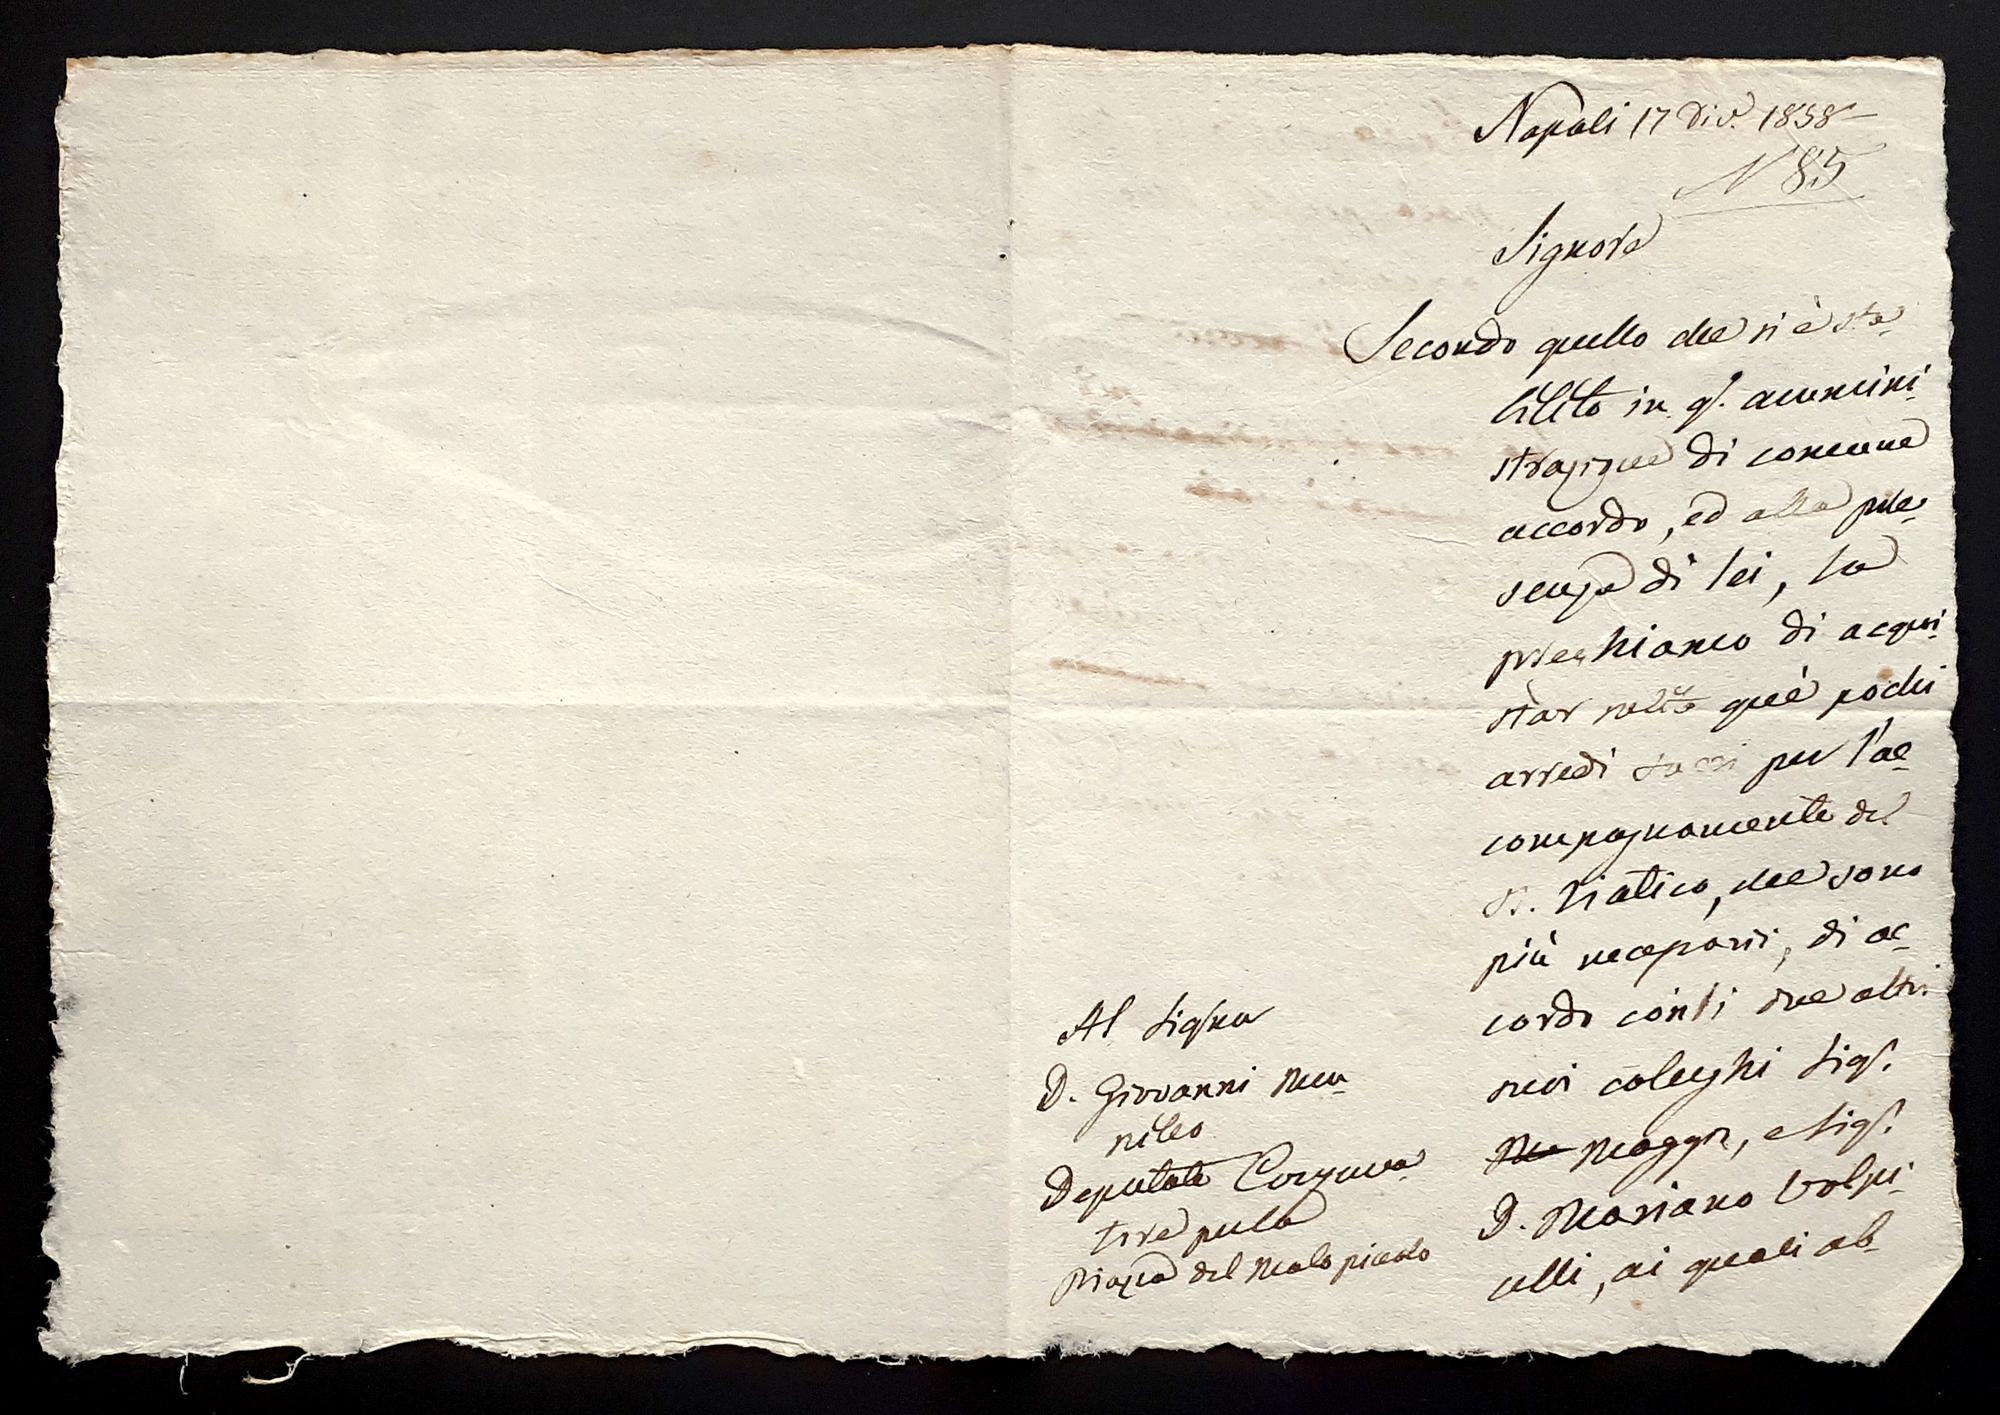 Napoli 17 Dic.e 1838
N 85
Signore
Secondo quello che si è sta-
bilito in q. ammini-
strazione di comune
accordo, ed alla pre-
senza di lei, la
preghiamo di acqui-
star que' pochi
arredi sacri per l'ac-
compagnamento del
S. Viatico, che sono
più necessarj, di ac-
cordo con li due altri
suoi colleghi Sig.r
Maggi, e Sig.r
D. Mariano Volpi-
celli, ai quali ab-
Al Signor
D. Giovanni
Deputato
Piazza del Molo piccolo